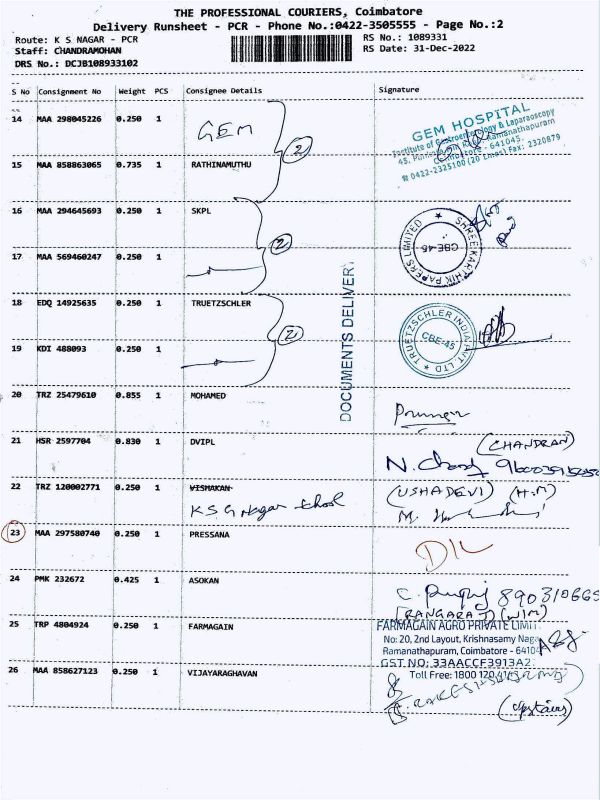 THE PROFESSIONAL COURIERS, Coimbatore
Delivery Runsheet - PCR - Phone No.:0422-3505555 - Page No.:2
Route: K S NAGAR - PCR RS No.: 1089331
Staff: CHANDRAMOHAN RS Date: 31-Dec-2022
DRS No.: DCJB108933102
S No Consignment No Weight PCS Consignee Details Signature
14 MAA 298045226 0.250 1 GEM
GEM HOSPITAL
Institute of Gastroenterology & Laparoscopy
45, Ramanathapuram
Coimbatore - 641045.
0422-2325100 (20 Lines) Fax: 2320879
2
15 MAA 858863065 0.735 1 RATHINAMUTHU
16 MAA 294645693 0.250 1 SKPL
SHREE KARTHIK PAPERS LIMITED
CBE-45
2
17 MAA 569460247 0.250 1
DOCUMENTS DELIVERY
18 EDQ 14925635 0.250 1 TRUETZSCHLER
TRUETZSCHLER INDIA PVT. LTD
CBE-45
2
19 KDI 488093 0.250 1
20 TRZ 25479610 0.855 1 MOHAMED
21 HSR 2597704 0.830 1 DVIPL (CHANDRAN)
22 TRZ 120002771 0.250 1 VISHAKAN (USHADEVI) (H.M)
K S G Nagar School
23 MAA 297580740 0.250 1 PRESSANA D/L
24 PMK 232672 0.425 1 ASOKAN
25 TRP 4804924 0.250 1 FARMAGAIN
FARMAGAIN AGRO PRIVATE LIMIT
No: 20, 2nd Layout, Krishnasamy Naga
Ramanathapuram, Coimbatore - 64104
GST NO: 33AACCF3913A2
Toll Free: 1800 120
26 MAA 858627123 0.250 1 VIJAYARAGHAVAN
(upstairs)